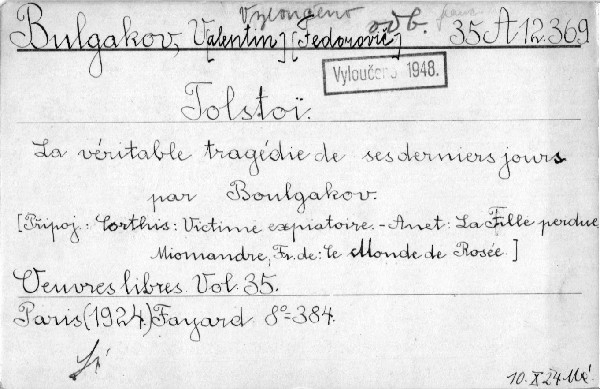 Vyloučeno odb.
Bulgakov, V[alentin] [Fedorovič] 35 A 12.369
Vyloučeno 1948.
Tolstoï.
La véritable tragédie de ses derniers jours
par Boulgakov.
[Připoj.: Corthis: Victime expiatoire. - Anet: La Fille perdue
Miomandre, Fr. de: Le Monde de Rosée]
Oeuvres libres. Vol. 35.
Paris (1924) Fayard 8º=384.
10. X 24. Mé